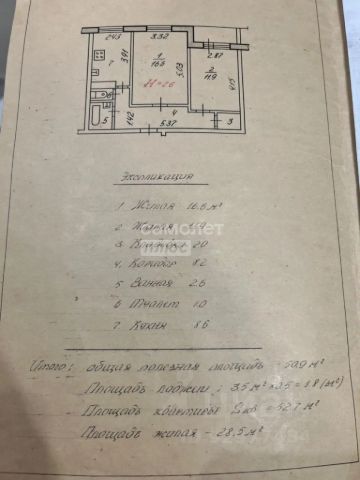 2.43
3.32
2.87
3.91
1
16.6
5.03
2
11.9
4.15
7
H=2.6
6
5
1.42
4
5.37
3
Экспликация
1 Жилая 16.6 м²
2 Жилая 11.9
самолет
плюс
3 Кладовка 2.0
4 Коридор 8.2
5 Ванная 2.6
6 Туалет 1.0
7 Кухня 8.6
Итого: общая полезная площадь = 50.9 м²
Площадь лоджии: 3.5 м² × 0.5 = 1.8 (м²)
Площадь квартиры Sкв = 52.7 м²
Площадь жилая - 28.5 м²